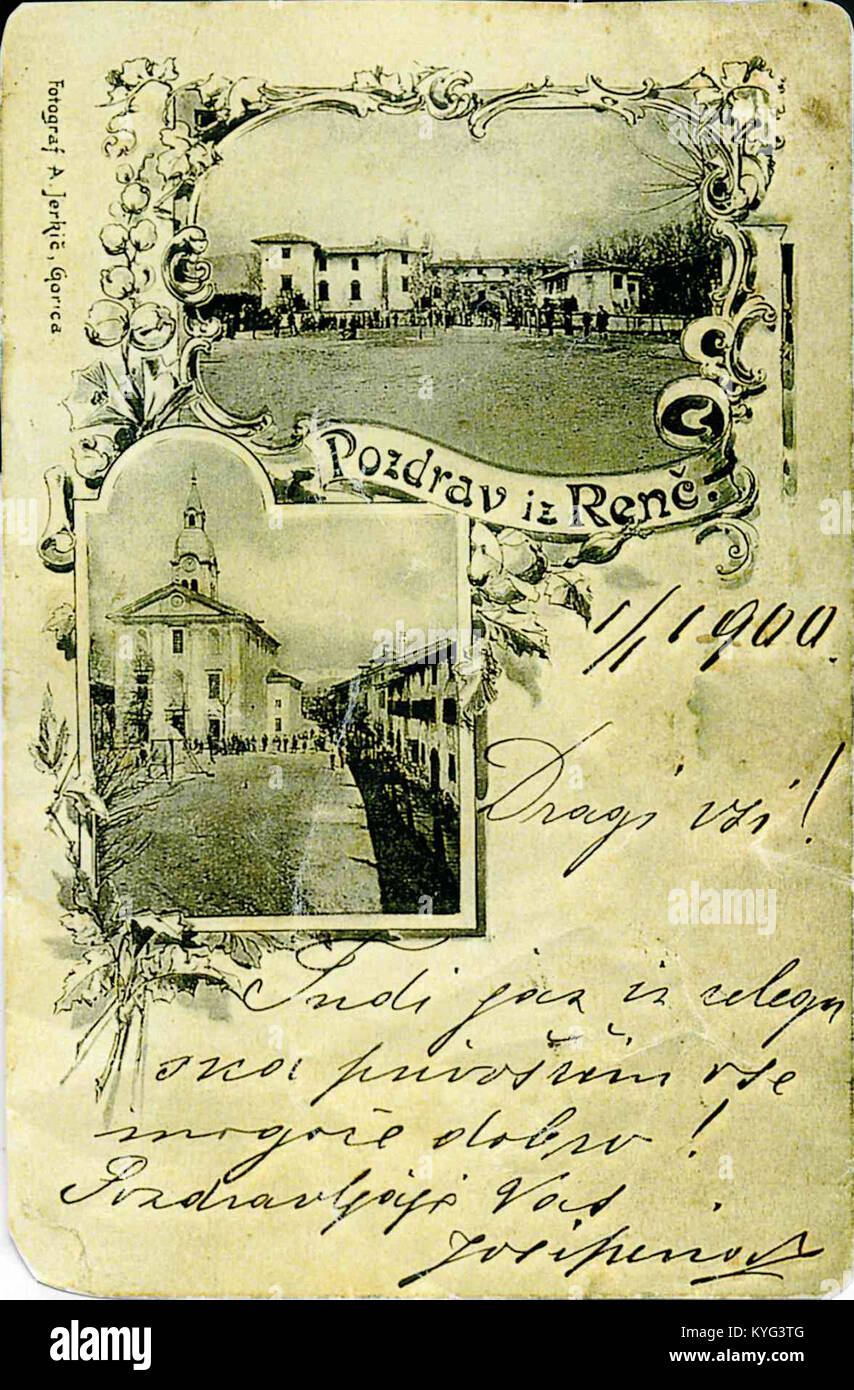 Fotograf A. Jerkič, Gorica
Pozdrav iz Renč.
1/1 1900.
Dragi vsi!
Tudi jaz iz celega
srca privoščim vse
mogoče dobro!
Pozdravljaje Vas
Josipina
alamy
Image ID: KYG3TG
www.alamy.com